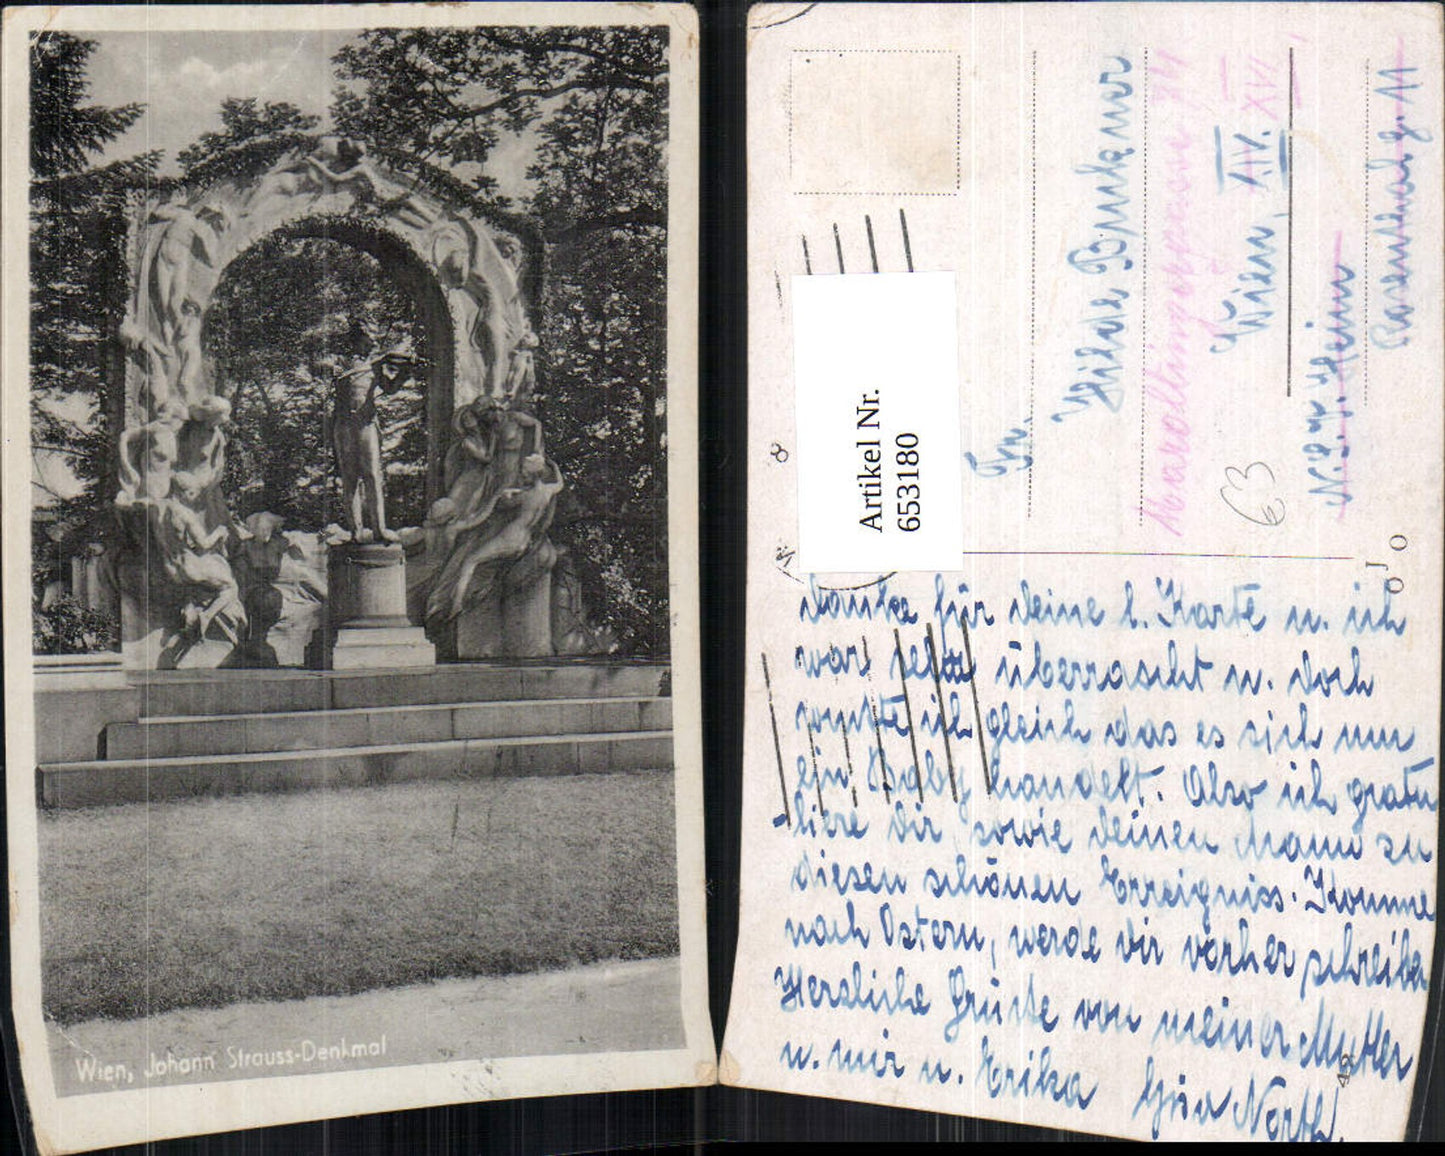 Wien, Johann Strauss-Denkmal
Artikel Nr.
653180
Fr.
Hilde
Wien, XIV. XVI.
63
N.
11
O
J
O
8
danke für deine l. Karte u. ich
war selbst überrascht u. doch
wußte ich gleich das es sich um
ein Baby handelt. Also ich gratu
-liere dir sowie deinen Mann zu
diesen schönen Erreigniss. Komme
nach Ostern, werde dir vorher schreiben
Herzliche Grüße von meiner Mutter
u. mir u. Erika
42